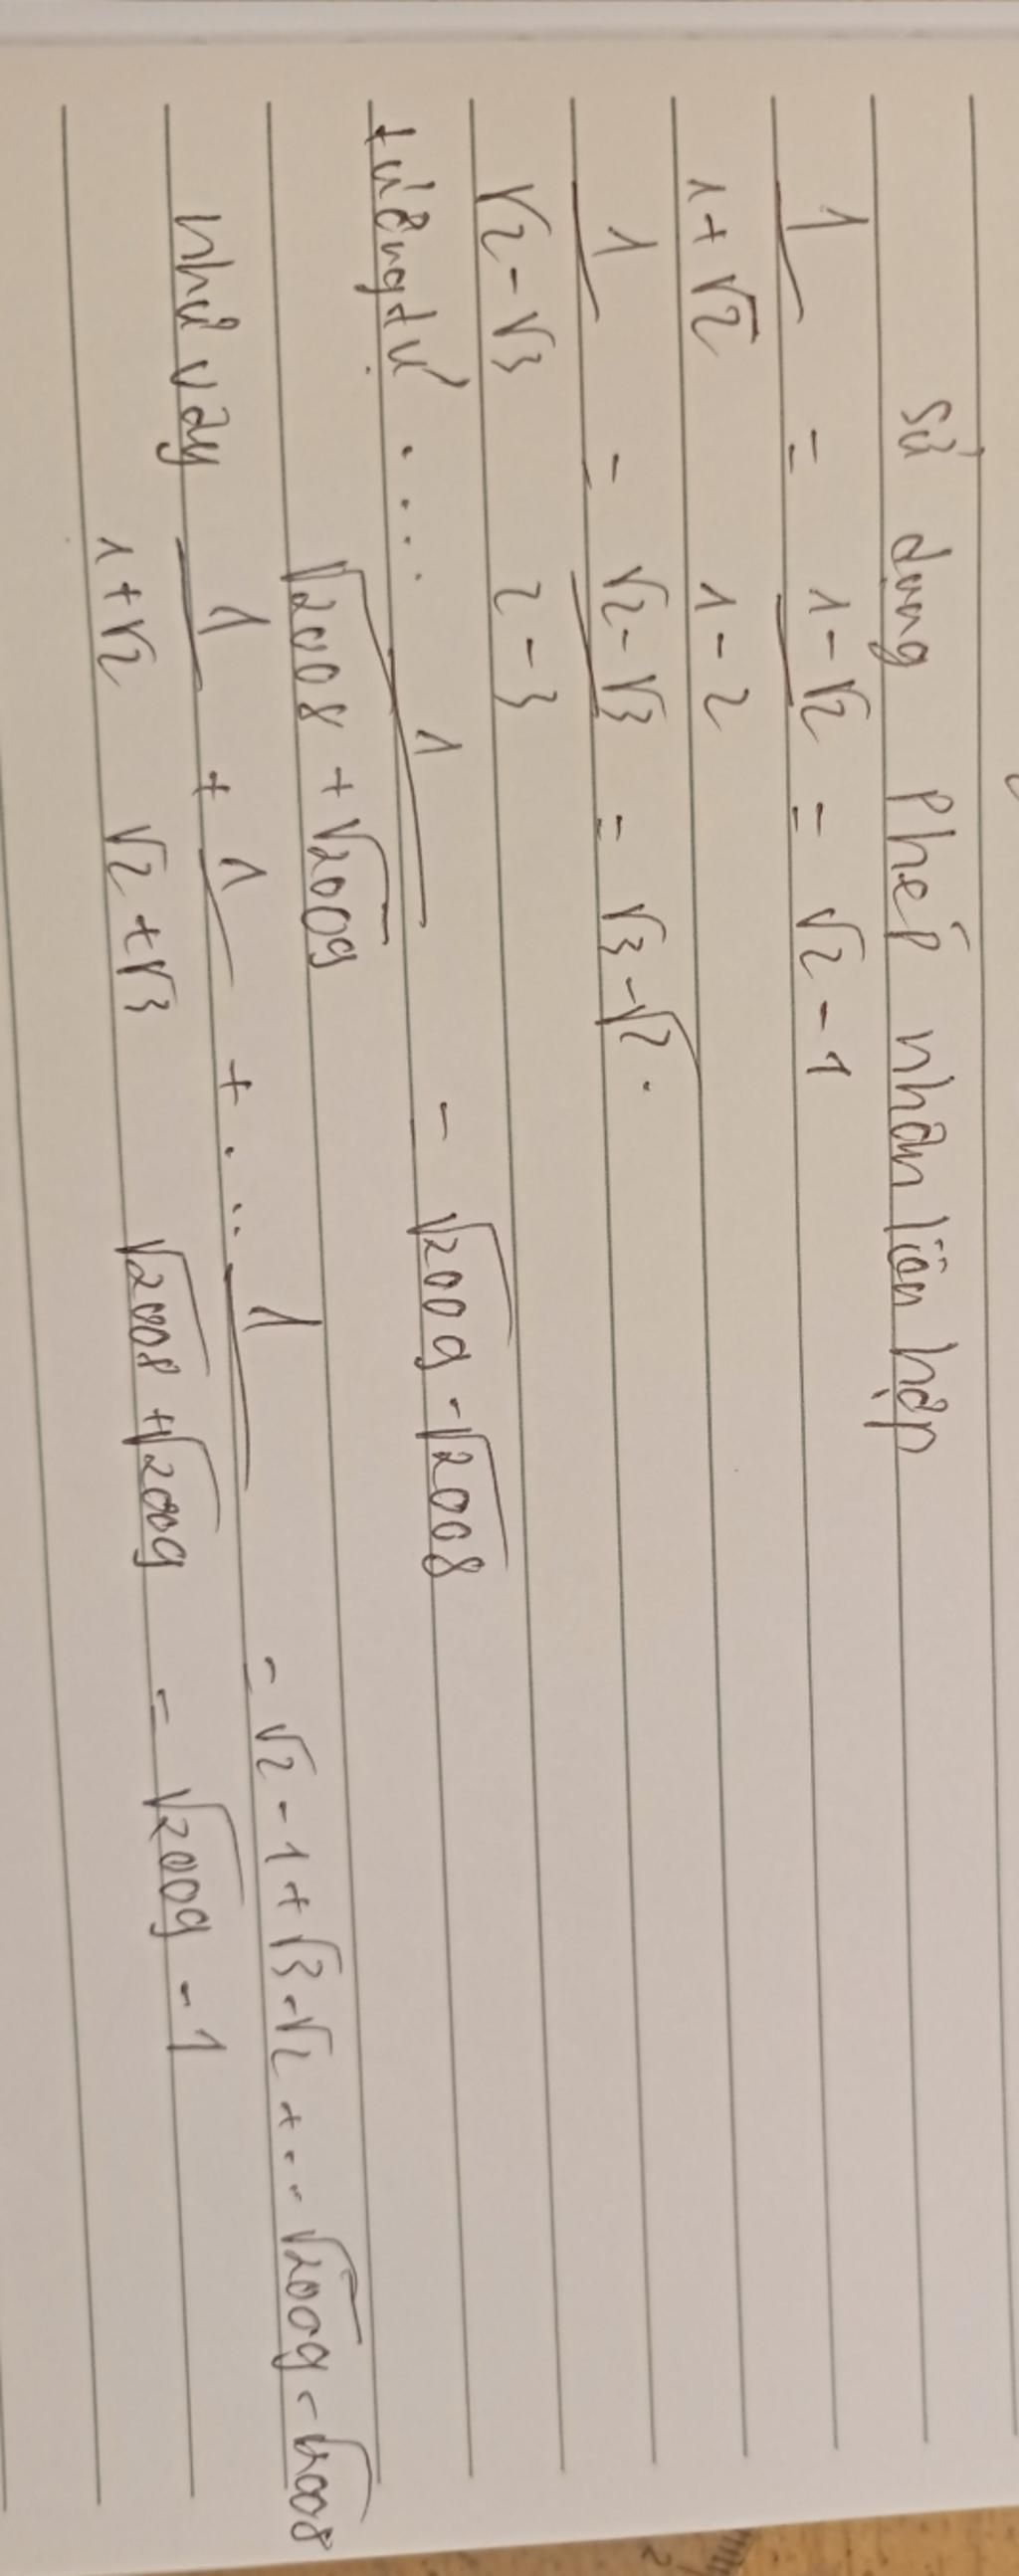 Sử dụng phép nhân liên hợp
1/(1+√2) = (1-√2)/(1-2) = √2 - 1
1/(√2-√3) = (√2-√3)/(2-3) = √3-√2.
tương tự .... 1/(√2008 + √2009) = √2009 - √2008
Như vậy 1/(1+√2) + 1/(√2+√3) + ... 1/(√2008+√2009) = √2 - 1 + √3-√2 + ... √2009 - √2008
= √2009 - 1